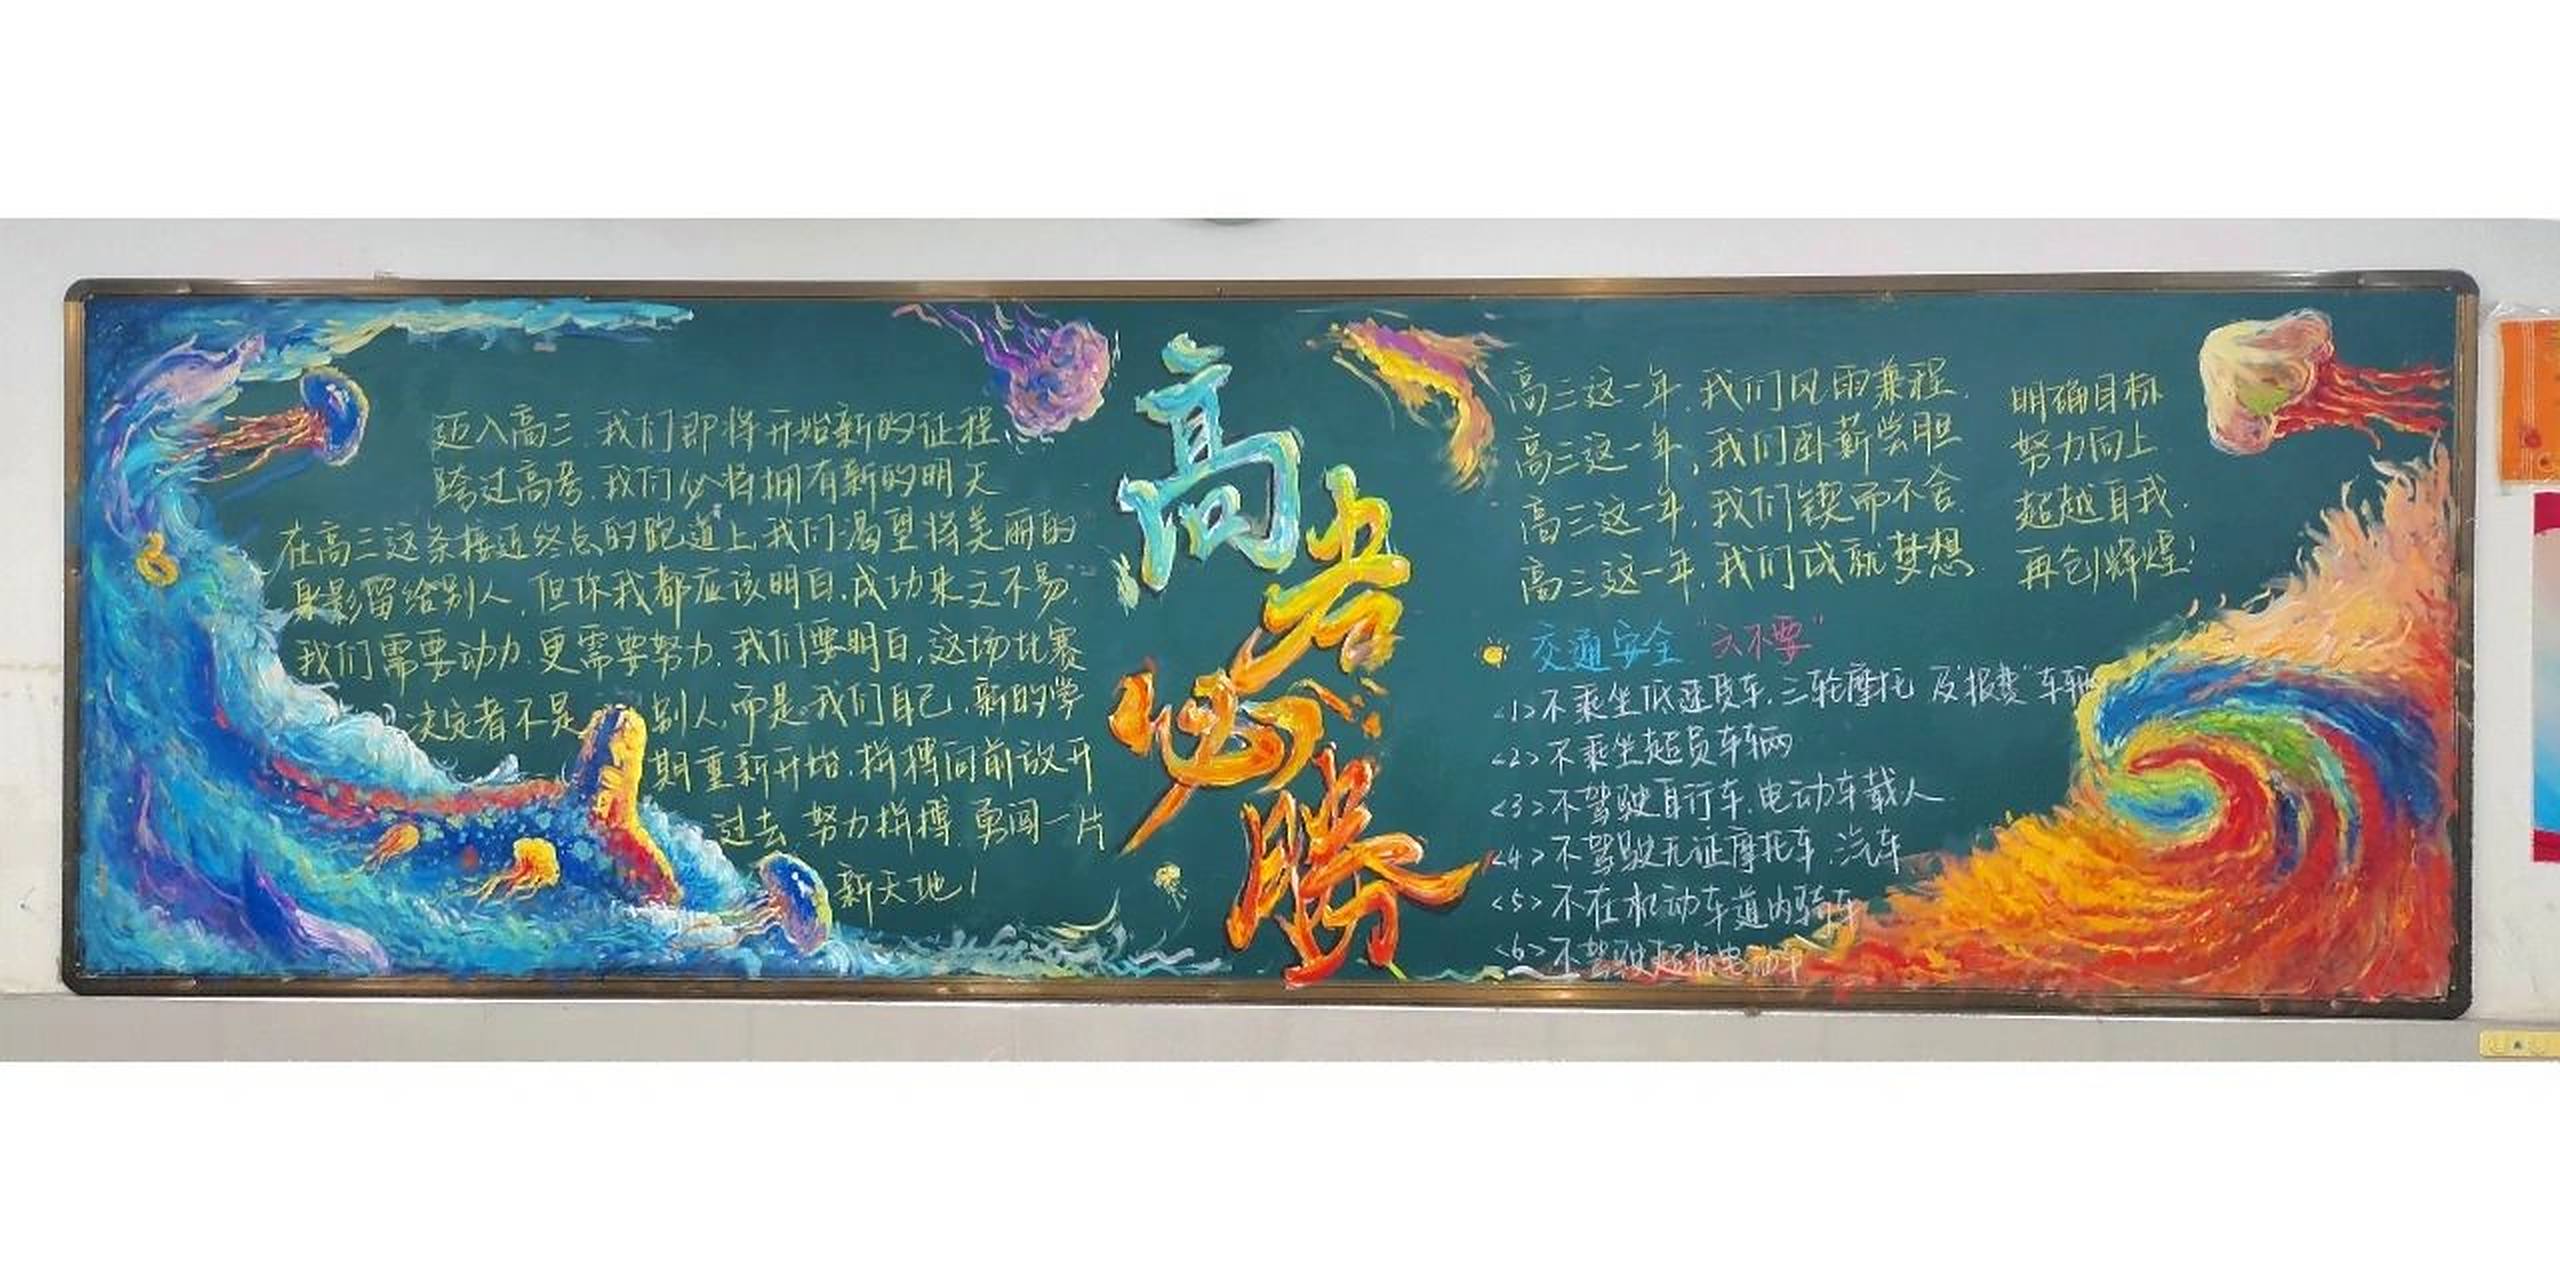 迈入高三,我们即将开始新的征程,
跨过高考,我们必将拥有新的明天
在高三这条接近终点的跑道上,我们渴望将美丽的
影留给别人,但你我都应该明白,成功来之不易,
我们需要动力,更需要努力,我们要明白,这场比赛
决定者不是别人,而是我们自己,新的学
期重新开始,拼搏向前放开
过去,努力拼搏,勇闯一片
新天地!
高考
必胜
高三这一年,我们风雨兼程,
高三这一年,我们卧薪尝胆
高三这一年,我们锲而不舍
高三这一年,我们成就梦想
明确目标
努力向上
超越自我,
再创辉煌!
交通安全“六不要”
<1>不乘坐低速货车,三轮摩托及“报费”车辆
<2>不乘坐超员车辆
<3>不驾驶自行车,电动车载人
<4>不驾驶无证摩托车,汽车
<5>不在机动车道内骑车
<6>不驾驶超标电动车